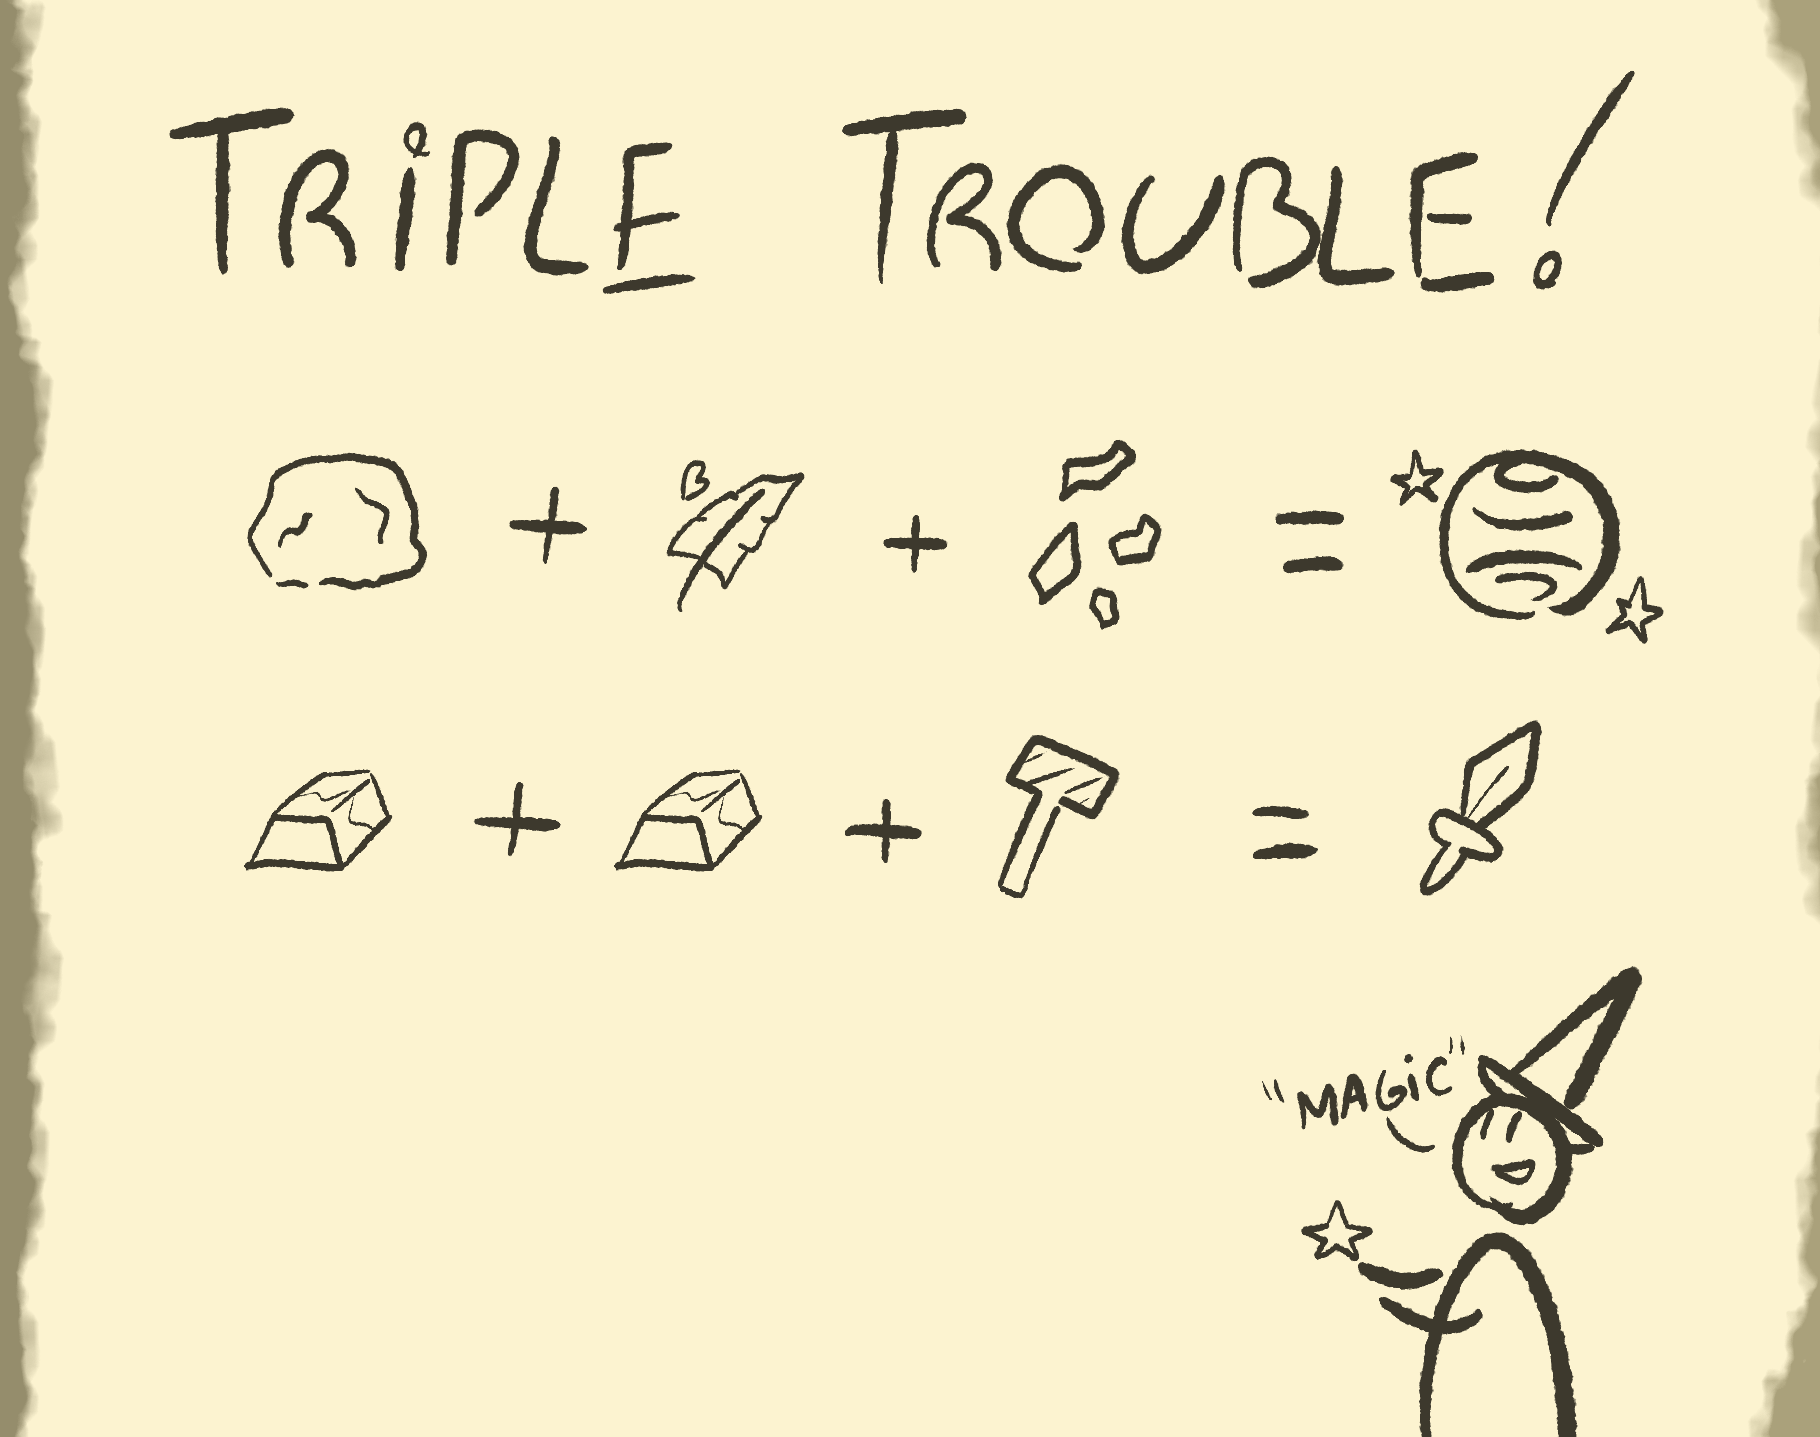 TRiPLE TROUBLE!
+ + =
+ + =
"MAGiC"